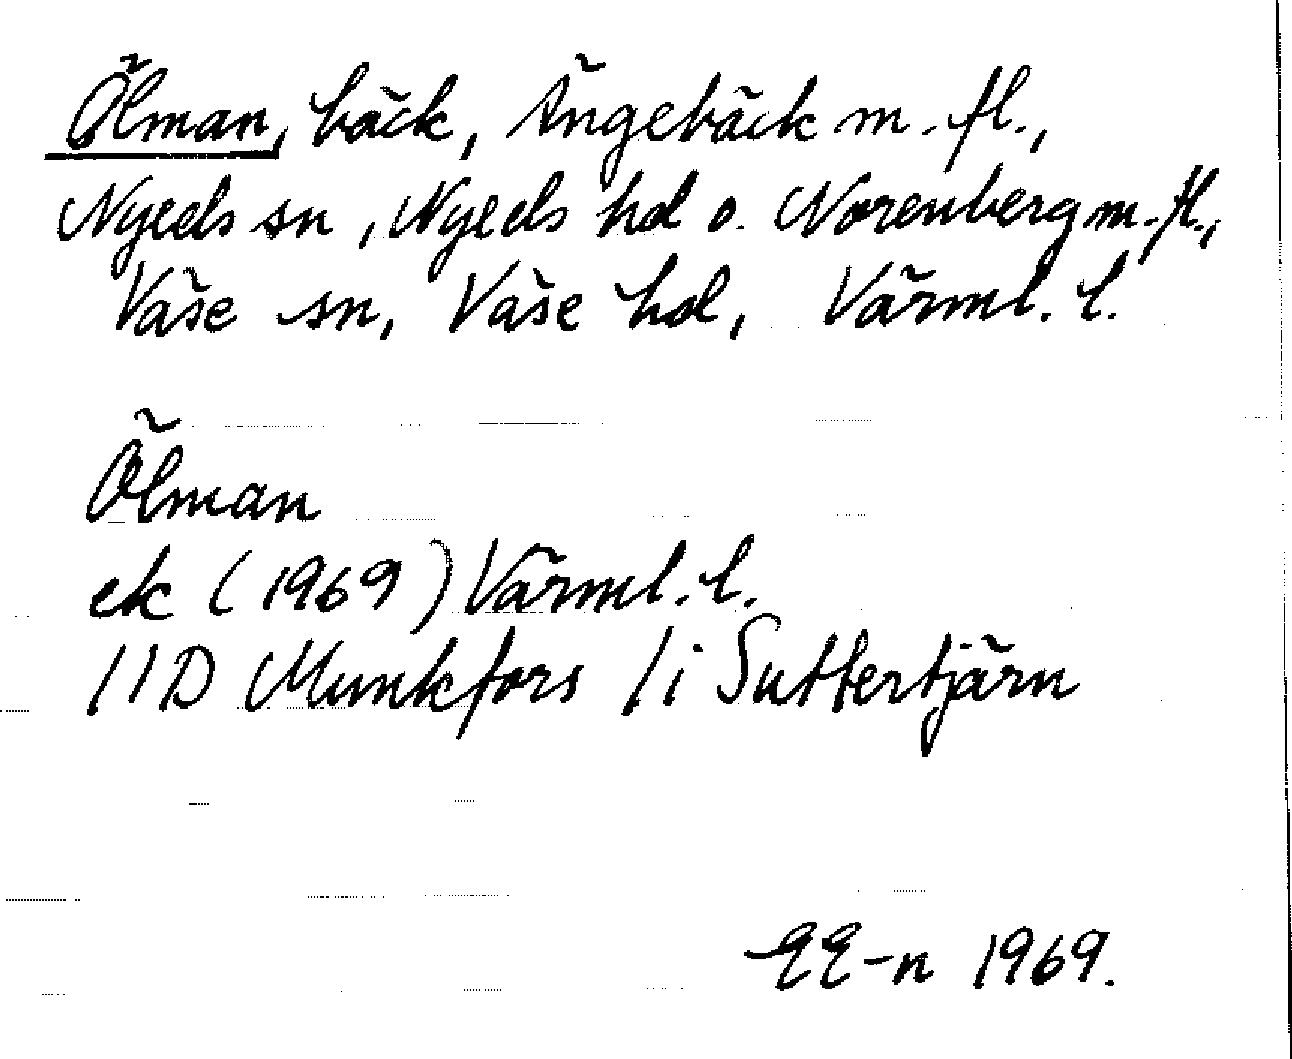 Ölman, bäck, Ängebäck m.fl.,
Nyeds sn, Nyeds hd o. Norenberg m.fl.,
Väse sn, Väse hd, Värml. l.
Ölman
ek (1969) Värml. l.
11D Munkfors /i Suttertjärn
EE-n 1969.